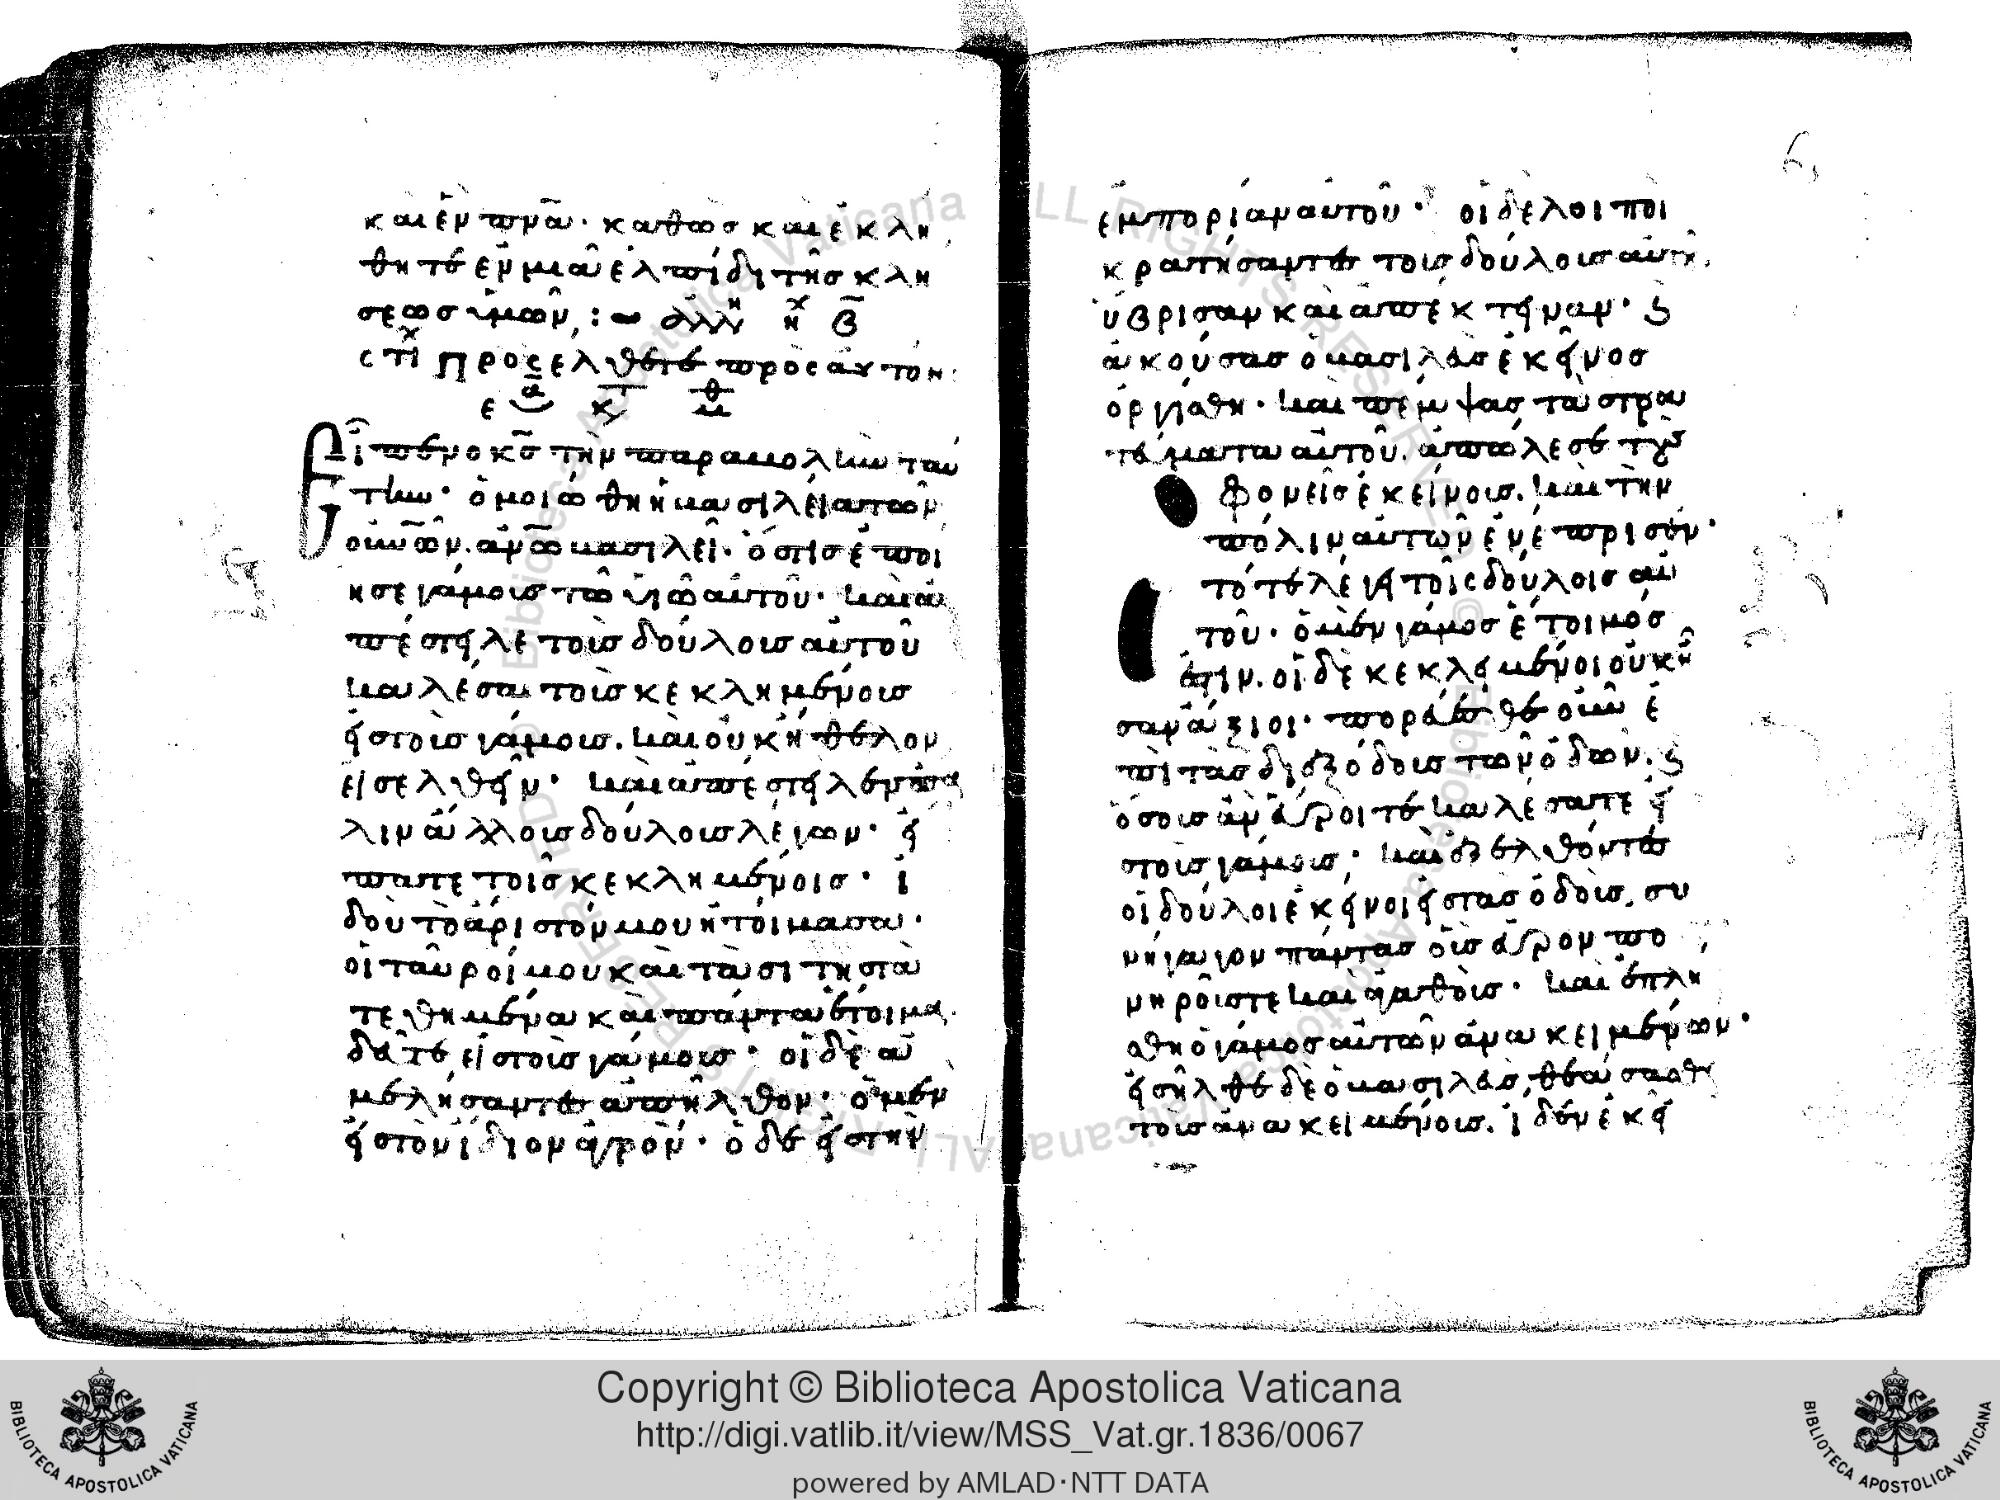 καὶ ἓν πνᾶ· καθὼς καὶ ἐκλή
θητε ἐν μιᾶ ἐλπίδι τῆς κλή
σεως ὑμῶν, :~ ἀλλη
στι Προσελθετε προς αὐτον
Εἶπεν ὁ κς τὴν παραβολὴν ταύ
την· ὁμοιώθη ἡ βασιλεία τῶν
οὐνῶν. ἀνω βασιλεῖ· ὅστις ἐποί
ησε γάμους τῶ υἱῶ αὐτοῦ· καὶ ἀ
πέστειλε τοὺς δούλους αὐτοῦ
καλέσαι τοὺς κεκλημένους
εἰς τοὺς γάμους. καὶ οὐκ ἤθελον
εἰσελθεῖν· καὶ ἀπέστειλεν πά
λιν ἄλλους δούλους λέγων· εἴ
πατε τοῖς κεκλημένοις· ἰ
δοὺ τὸ ἄριστόν μου ἡτοίμασα·
οἱ ταῦροί μου καὶ τὰ σιτηστὰ
τεθημένα καὶ πάντα ἕτοιμα.
δεῦτε εἰς τοὺς γάμους· οἱ δὲ ἀ
μελήσαντες ἀπῆλθον· ὁ μὲν
εἰς τὸν ἴδιον ἀγρόν· ὁ δὲ εἰς τὴν
6
ἐμπορίαν αὐτοῦ· οἱ δὲ λοιποὶ
κρατήσαντες τοὺς δούλους αὐτοῦ,
ὕβρισαν καὶ ἀπέκτειναν· ϛ
ἀκούσας ὁ βασιλεὺς ἐκεῖνος
ὀργίσθη· καὶ πέμψας τὰ στρα
τεύματα αὐτοῦ. ἀπώλεσε τοὺς
φονεῖς ἐκείνους. καὶ τὴν
πόλιν αὐτῶν ἐνέπρισεν·
τότε λέγει τοῖς δούλοις αὐ
τοῦ· ὁ μὲν γάμος ἕτοιμός
ἐστιν. οἱ δὲ κεκλημένοι οὐκ ἦ
σαν ἄξιοι· πορεύεσθε οὖν ἐ
πὶ τὰς διεξόδους τῶν ὁδῶν. ϛ
ὅσους ἂν εὕροιτε καλέσατε εἰ
ς τοὺς γάμους, καὶ ἐξελθόντες
οἱ δοῦλοι ἐκεῖνοι εἰς τὰς ὁδοὺς, συ
νήγαγον πάντας οὓς εὗρον πο
νηροῦς τε καὶ ἀγαθοὺς· καὶ ἐπλή
σθη ὁ γάμος αὐτῶν ἀνακειμένων·
εἰσῆλθε δὲ ὁ βασιλεὺς, θεάσασθαι
τοὺς ἀνακειμένους. ἰδὲν ἐκεῖ
Copyright © Biblioteca Apostolica Vaticana
http://digi.vatlib.it/view/MSS_Vat.gr.1836/0067
powered by AMLAD·NTT DATA
BIBLIOTECA APOSTOLICA VATICANA
BIBLIOTECA APOSTOLICA VATICANA